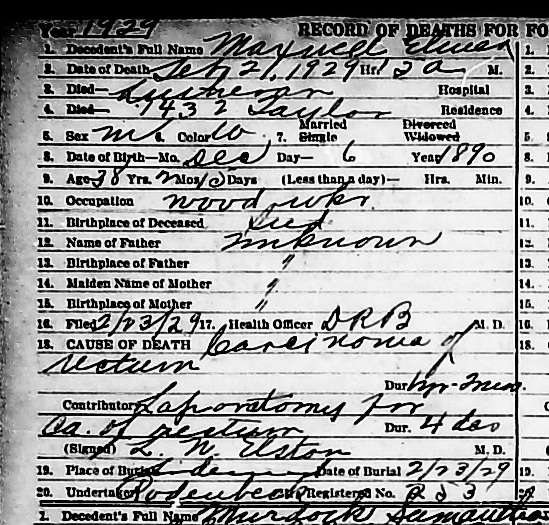 Year 1929 RECORD OF DEATHS FOR FO
1. Decedent's Full Name Maxwell Elmer 1.
2. Date of Death Feb 21, 1929 Hr. 12 a M. 2.
3. Died— Lutheran Hospital 3.
4. Died— 7432 Taylor Residence 4.
5. Sex M 6. Color W 7. Married Single Divorced Widowed 5.
8. Date of Birth—Mo. Dec Day— 6 Year 1890 8.
9. Age 38 Yrs. 2 Mos. 15 Days (Less than a day)— Hrs. Min. 9.
10. Occupation Wood wkr. 10.
11. Birthplace of Deceased Ind 11.
12. Name of Father Unknown 12.
13. Birthplace of Father " 13.
14. Maiden Name of Mother " 14.
15. Birthplace of Mother " 15.
16. Filed 2/23/29 17. Health Officer DRB M. D. 16.
18. CAUSE OF DEATH Carcinoma of 18.
rectum
Dur.
Contributory Laporatomy for
Ca. of rectum Dur. 4 das
(Signed) L. N. Elston M. D.
19. Place of Burial Date of Burial 2/23/29 19.
20. Undertaker Registered No. 20.
1. Decedent's Full Name Murdock Samantha